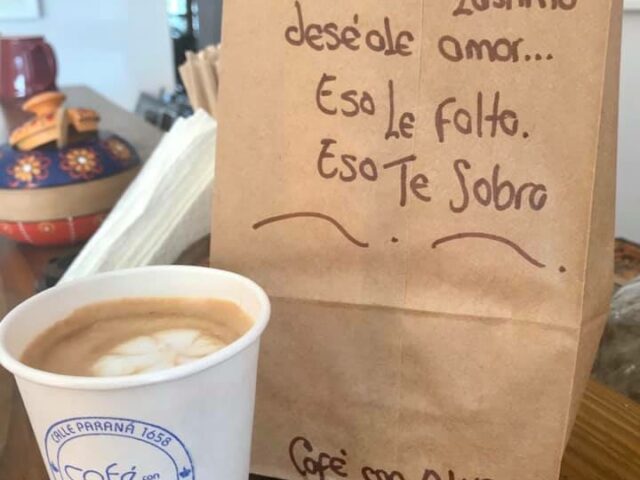 deséale amor...
Eso Le falta.
Eso Te Sobra
Café con
CALLE PARANÁ 1658
CAFÉ con